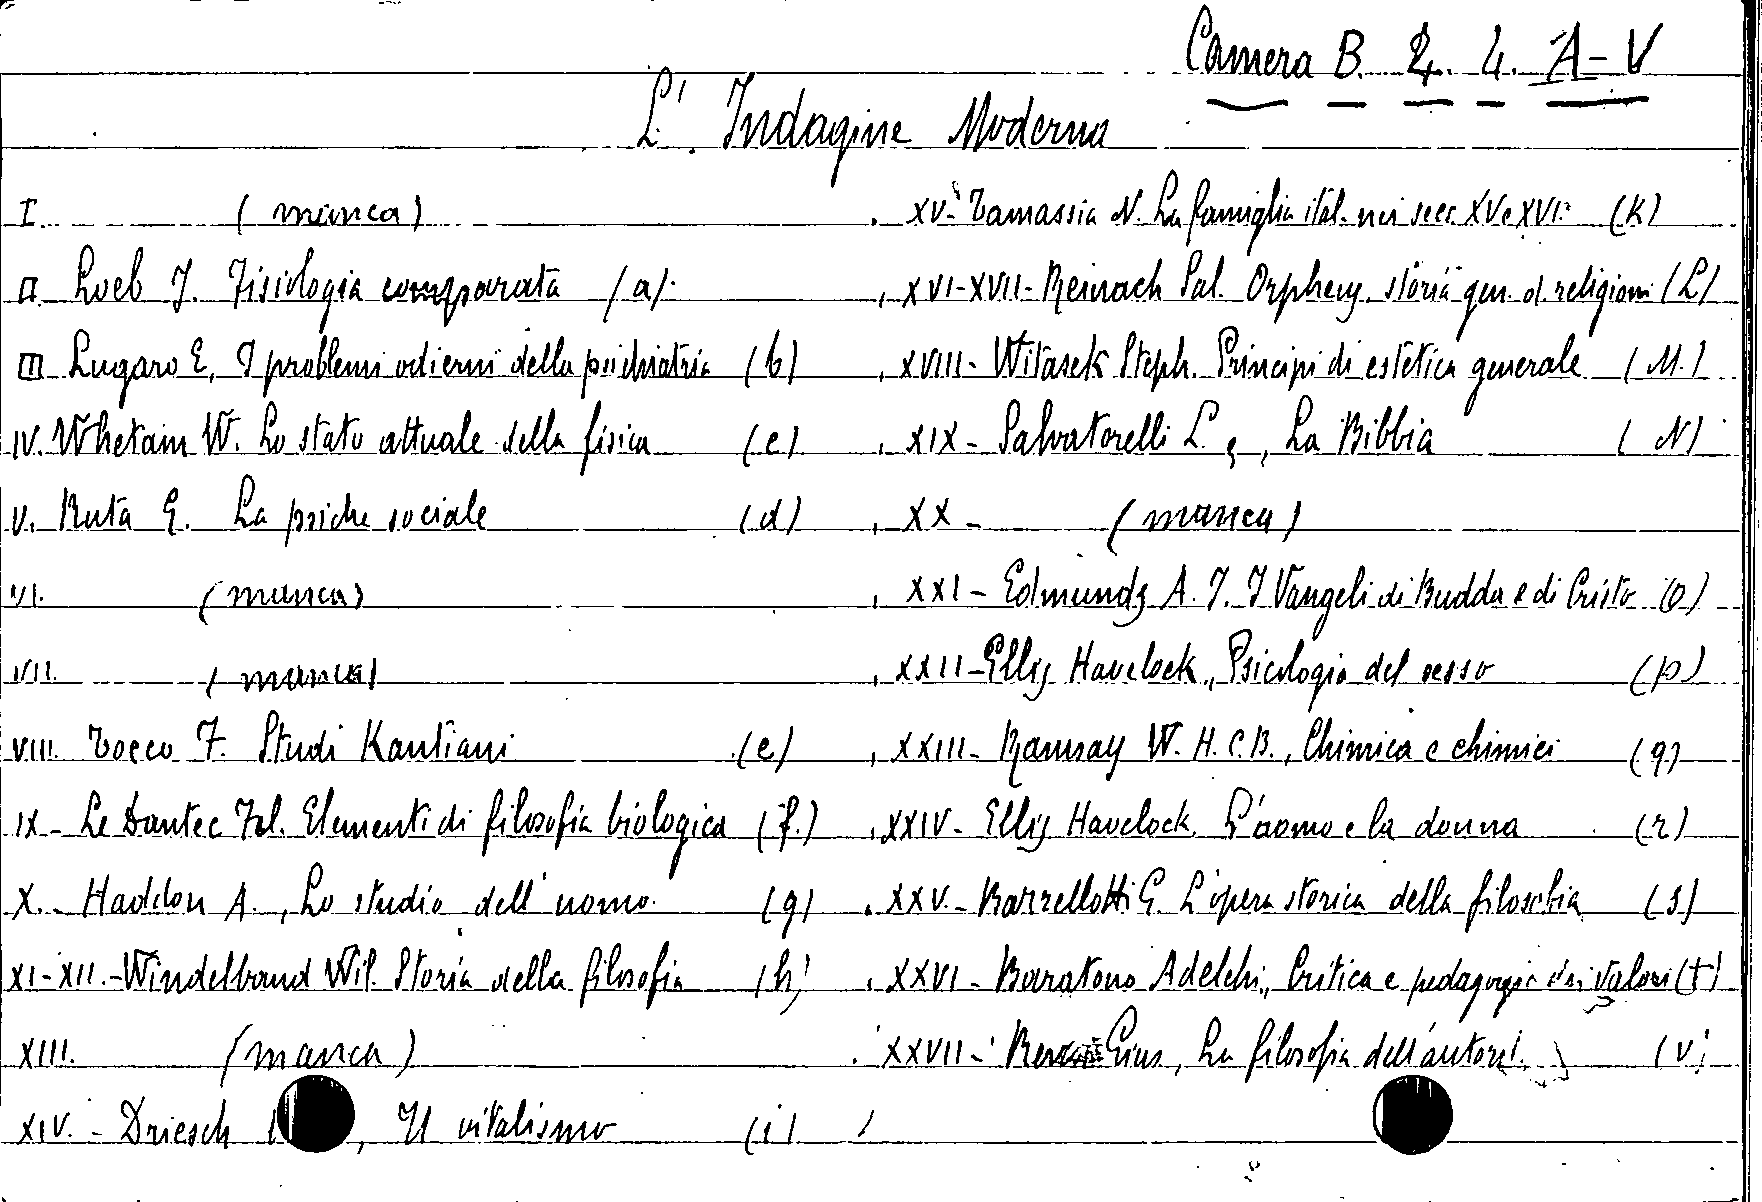 Camera B. 2. 4. A-V
L'Indagine Moderna
I. (manca)
II. Loeb J. Fisiologia comparata (a).
III Lugaro E, I problemi odierni della psichiatria (b)
IV. Whetam W. Lo stato attuale della fisica (c)
V. Ruta E. La psiche sociale (d)
VI. (manca)
VII. (manca)
VIII. Tocco F. Studi Kantiani (e)
IX - Le Dantec Fel. Elementi di filosofia biologica (f.)
X. - Haddon A., Lo studio dell'uomo. (g)
XI-XII.-Windelband Wil. Storia della filosofia (h)
XIII. (manca)
XIV. - Driesch , Il vitalismo (i)
XV- Tamassia N. La famiglia ital. nei secc. XV e XVI. (k)
XVI-XVII- Reinach Sal. Orpheus. storia gen. d. religioni (L)
XVIII- Witasek Steph. Principi di estetica generale (M.)
XIX - Salvatorelli L., La Bibbia (N)
XX - (manca)
XXI - Edmunds A. J. I Vangeli di Budda e di Cristo (O)
XXII - Ellis Havelock., Psicologia del sesso (p)
XXIII - Ramsay W. H. C.B., Chimica e chimici (q)
XXIV - Ellis Havelock. L'uomo e la donna (r)
XXV. - Barzellotti G. L'opera storica della filosofia (s)
XXVI - Baratono Adelchi., Critica e pedagogia dei valori (t)
XXVII - Gius, La filosofia dell'autori. (v)